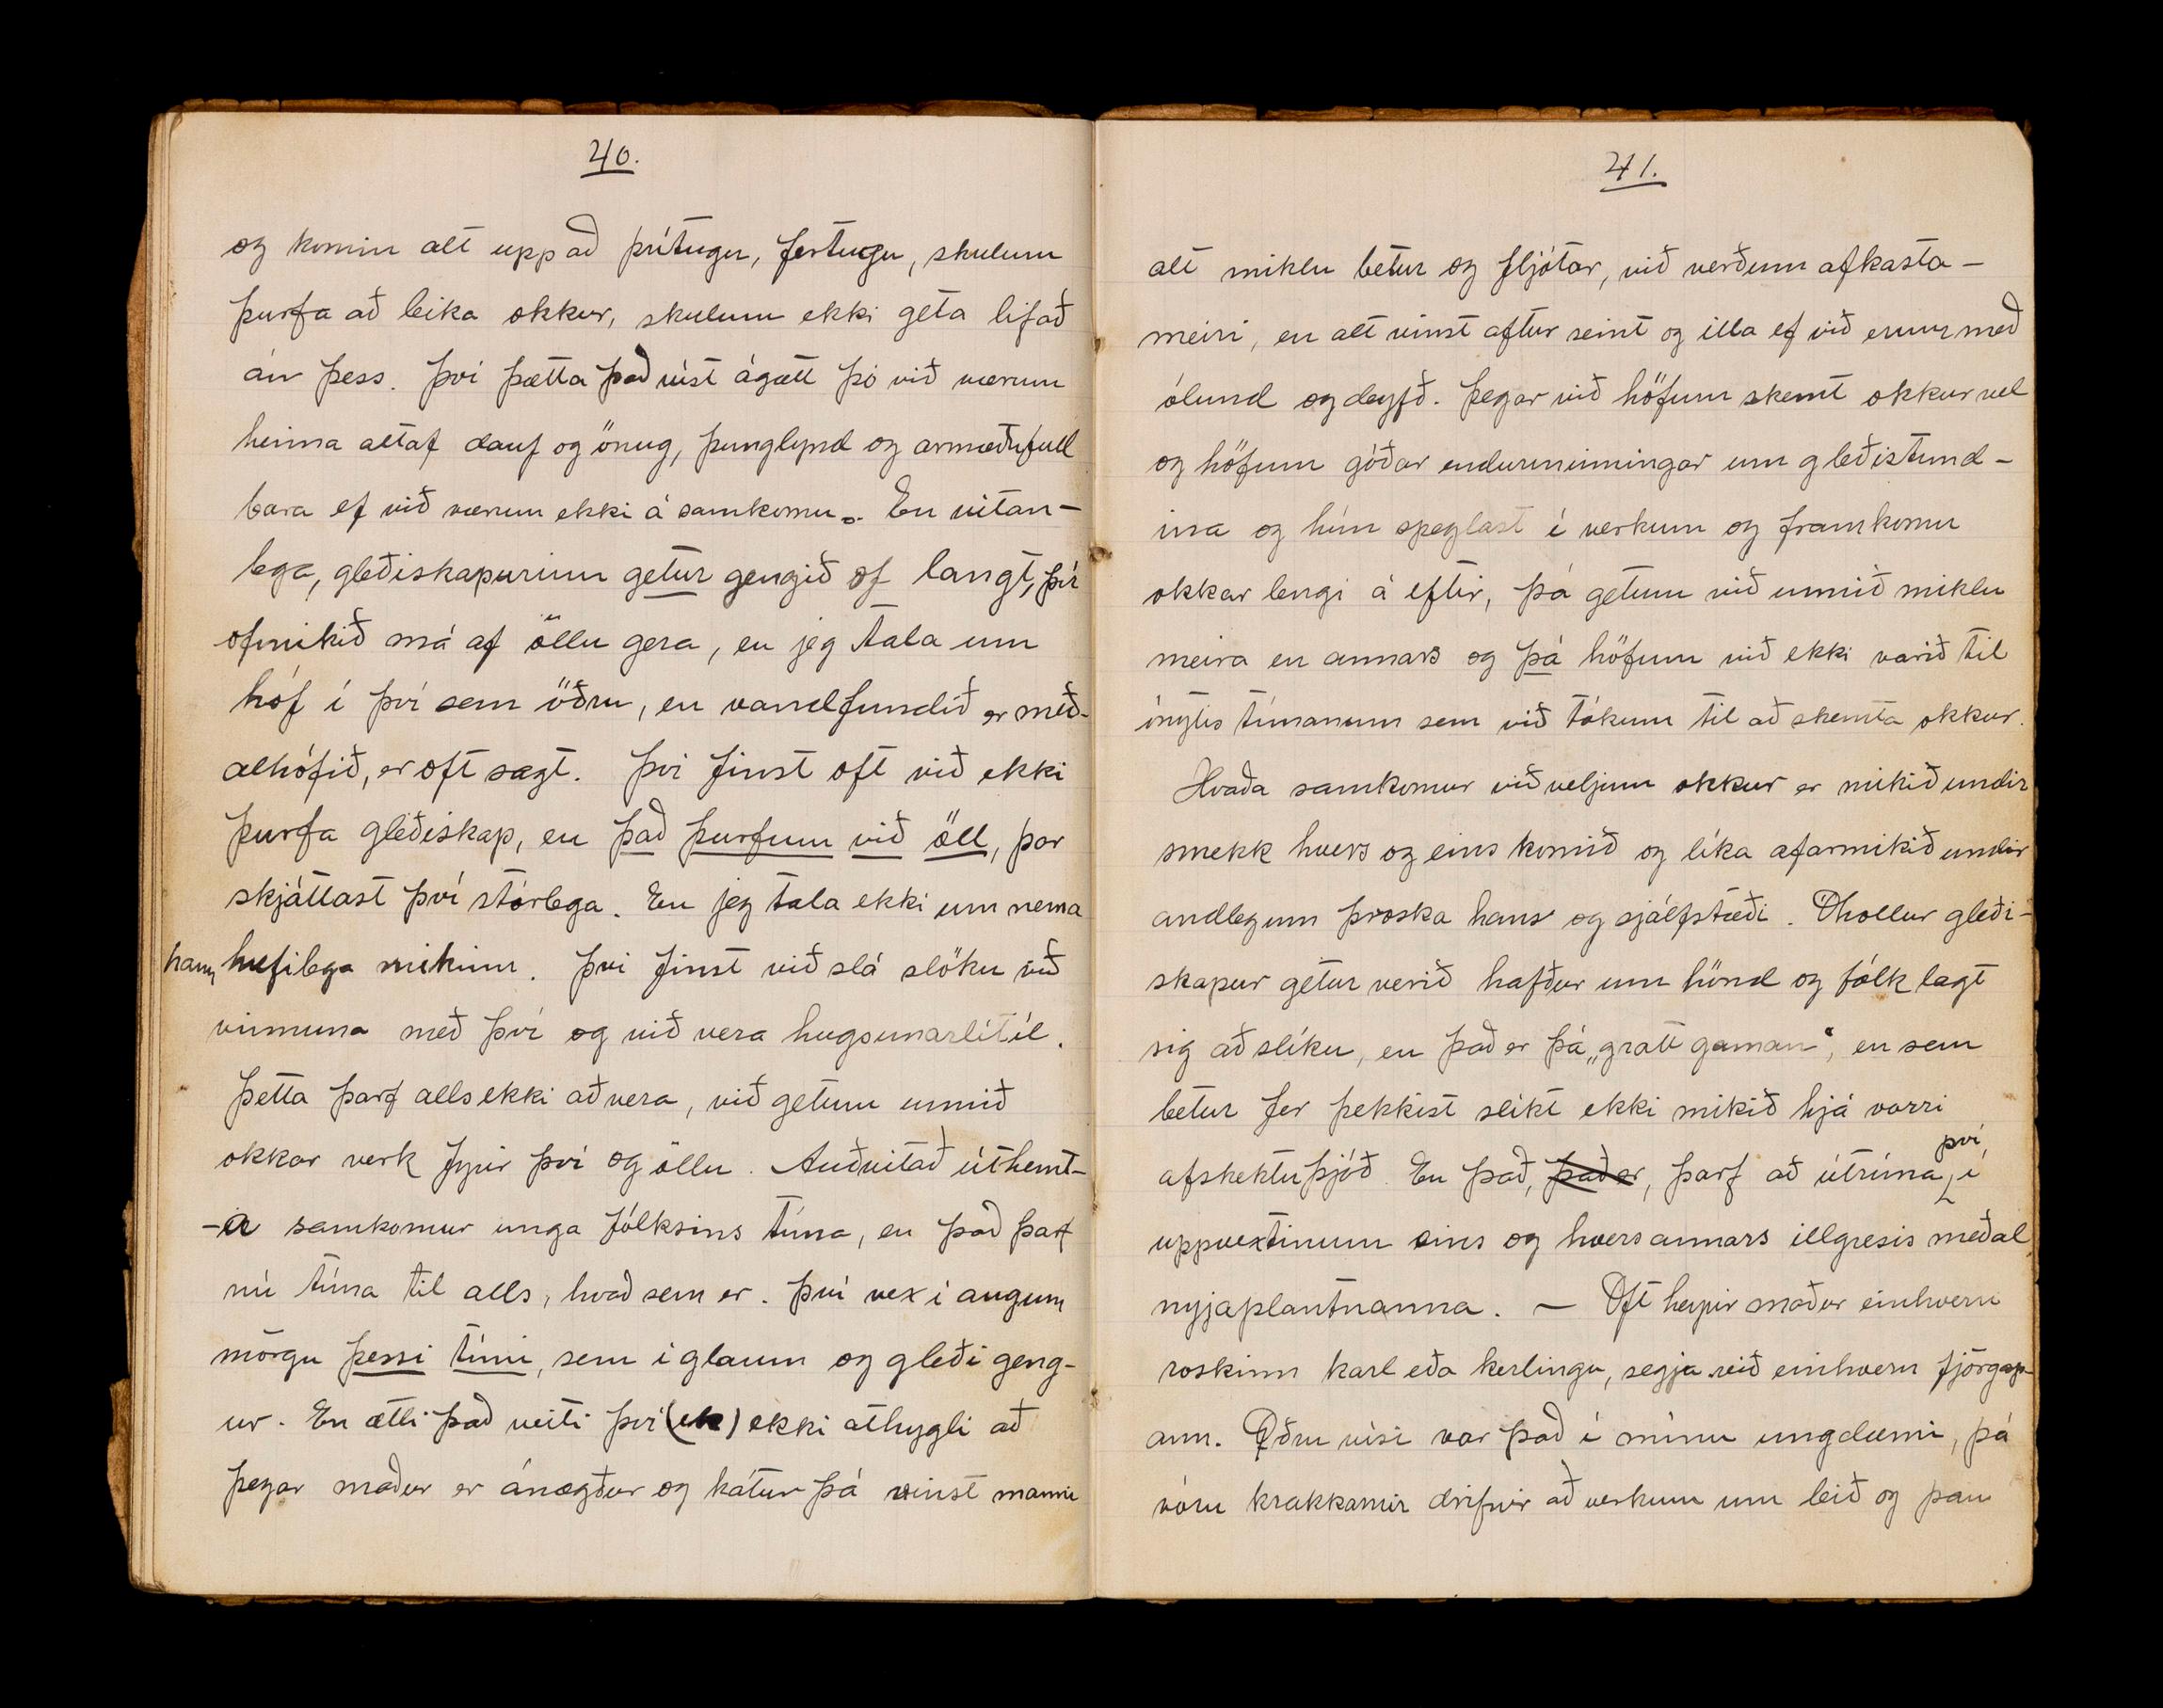 40.
og komin alt upp að þrítugu, fertugu, skulum
þurfa að leika okkur, skulum ekki geta lifað
án þess. Því þætta það víst ágætt þó við værum
heima altaf dauf og önug, þunglynd og armæðufull
bara ef við værum ekki á samkomu. En vitan-
lega, gleðiskapurinn getur gengið of langt, því
ofmikið má af öllu gera, en jeg tala um
hóf í því sem öðru, en vandfundið er með-
alhófið, er oft sagt. Því finst oft við ekki
þurfa gleðiskap, en það þurfum við öll, þar
skjáttast því stórlega. En jeg tala ekki um nema
hann, hæfilega mikinn. Því finst við slá slöku við
vinnuna með því og við vera hugsunarlítil.
Þetta þarf alls ekki að vera, við getum unnið
okkar verk fyrir því og öllu. Auðvitað útheimt-
-a samkomur unga fólksins tíma, en það þarf
nú tíma til alls, hvað sem er. Því vex í augum
mörgu þessi tími, sem í glaum og gleði geng-
ur. En ætli það veiti því (ek) ekki athygli að
þegar maður er ánægður og kátur þá vinst manni
41.
alt miklu betur og fljótar, við verðum afkasta-
meiri, en alt vinst aftur seint og illa ef við erum með
ólund og deyfð. Þegar við höfum skemt okkur vel
og höfum góðar endurminningar um gleðistund-
ina og hún speglast í verkum og framkomu
okkar lengi á eftir, þá getum við unnið miklu
meira en annars og þá höfum við ekki varið til
ónýtis tímanum sem við tókum til að skemta okkur.
Hvaða samkomur við veljum okkur er mikið undir
smekk hvers og eins komið og líka afarmikið undir
andlegum þroska hans og sjálfstæði. Óhollur gleði-
skapur getur verið hafður um hönd og fólk lagt
sig að slíku, en það er þá „grátt gaman“, en sem
betur fer þekkist slíkt ekki mikið hjá vorri
afskektu þjóð. En það, það er, þarf að útrýma því í
uppvextinum eins og hvers annars illgresis meðal
nýjaplantnanna. — Oft heyrir maður einhvern
roskinn karl eða kerlingu, segja við einhvern fjörgap-
ann. Öðru vísi var það í mínu ungdæmi, þá
vóru krakkarnir drifnir að verkum um leið og þau